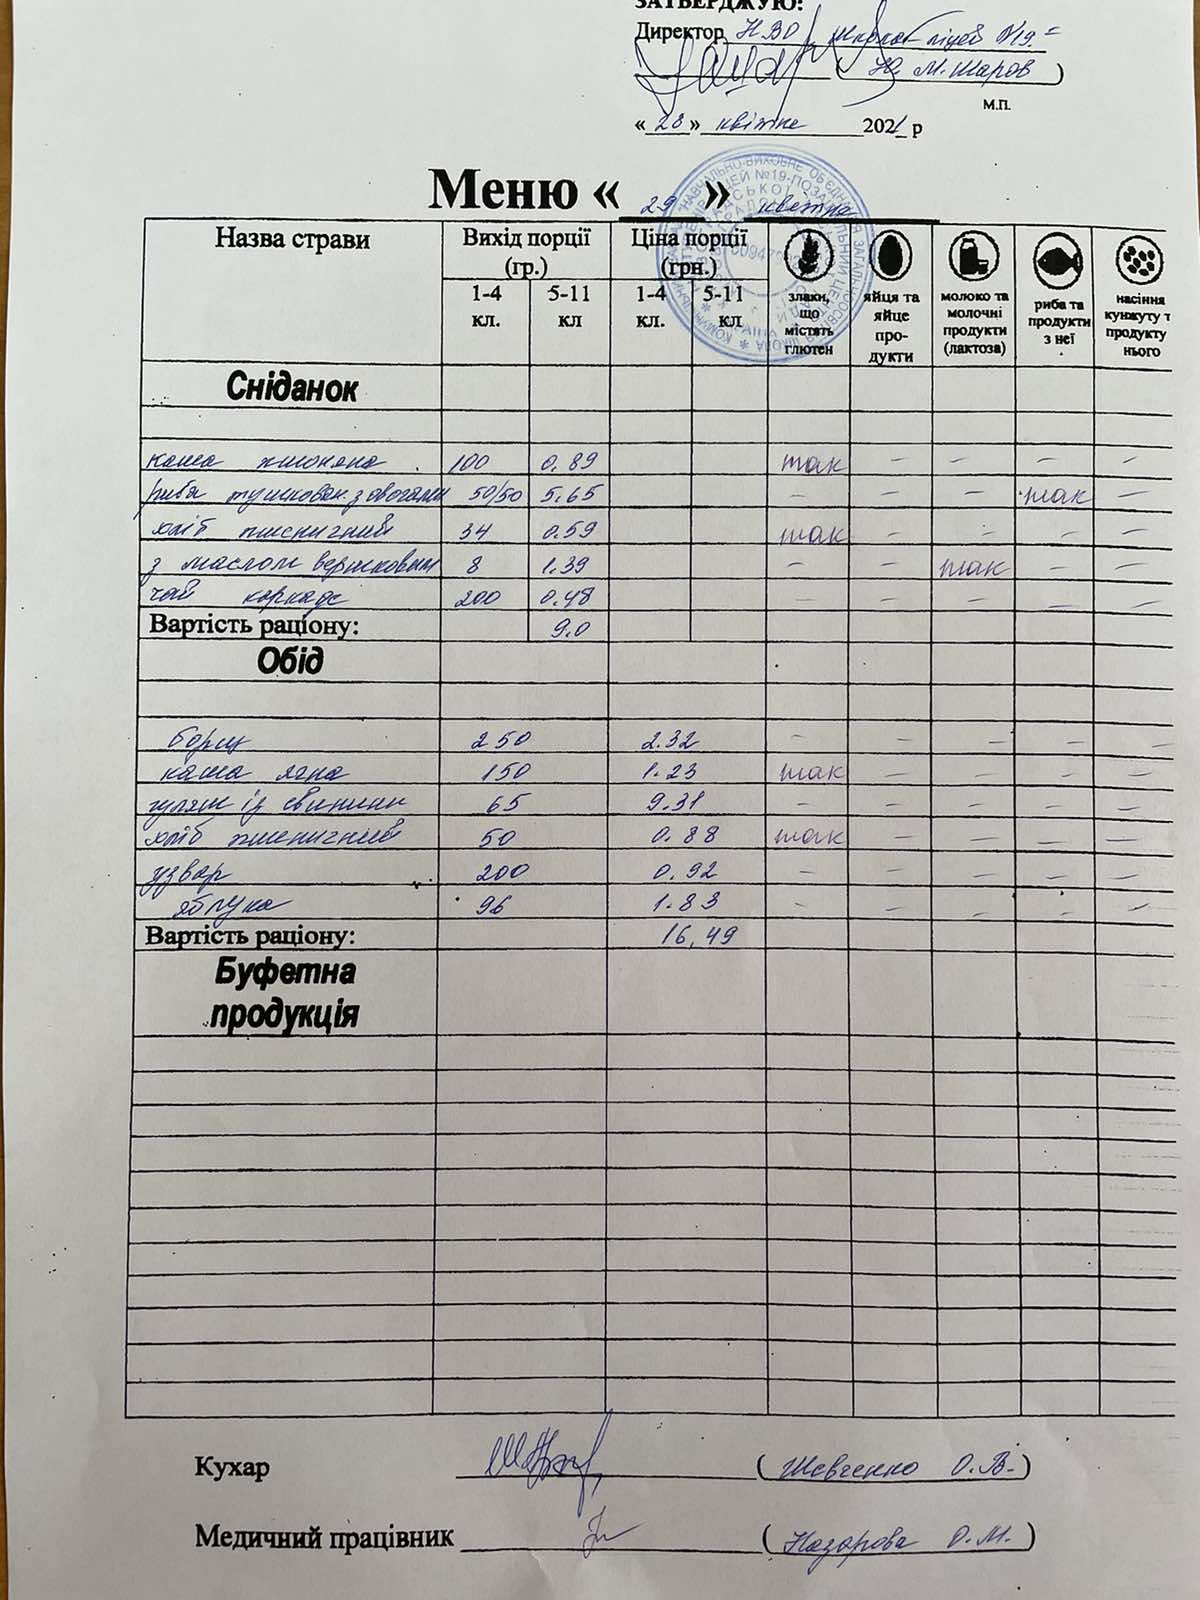 ЗАТВЕРДЖУЮ:
Директор НВО Школа-ліцей №19
(Ю. М. Шаров)
М.П.
«28» квітня 2021 р
Меню «29» квітня
Назва страви Вихід порції (гр.) Ціна порції (грн.) злаки, що містять глютен яйця та яйце про-дукти молоко та молочні продукти (лактоза) риба та продукти з неї насіння кунжуту т продукту нього
1-4 кл. 5-11 кл 1-4 кл. 5-11 кл
Сніданок
каша пшоняна 100 0.89 так – – – –
риба тушкован. з овочами 50/50 5.65 – – – так –
хліб пшеничний 34 0.59 так – – – –
з маслом вершковим 8 1.39 – – так – –
чай каркаде 200 0.48 – – – – –
Вартість раціону: 9.0
Обід
борщ 250 2.32 – – – – –
каша ячна 150 1.23 так – – – –
гуляш із свинини 65 9.31 – – – – –
хліб пшеничний 50 0.88 так – – – –
узвар 200 0.92 – – – – –
яблука 96 1.83 – – – – –
Вартість раціону: 16,49
Буфетна
продукція
Кухар (Шевченко О.В.)
Медичний працівник (Назарова О.М.)